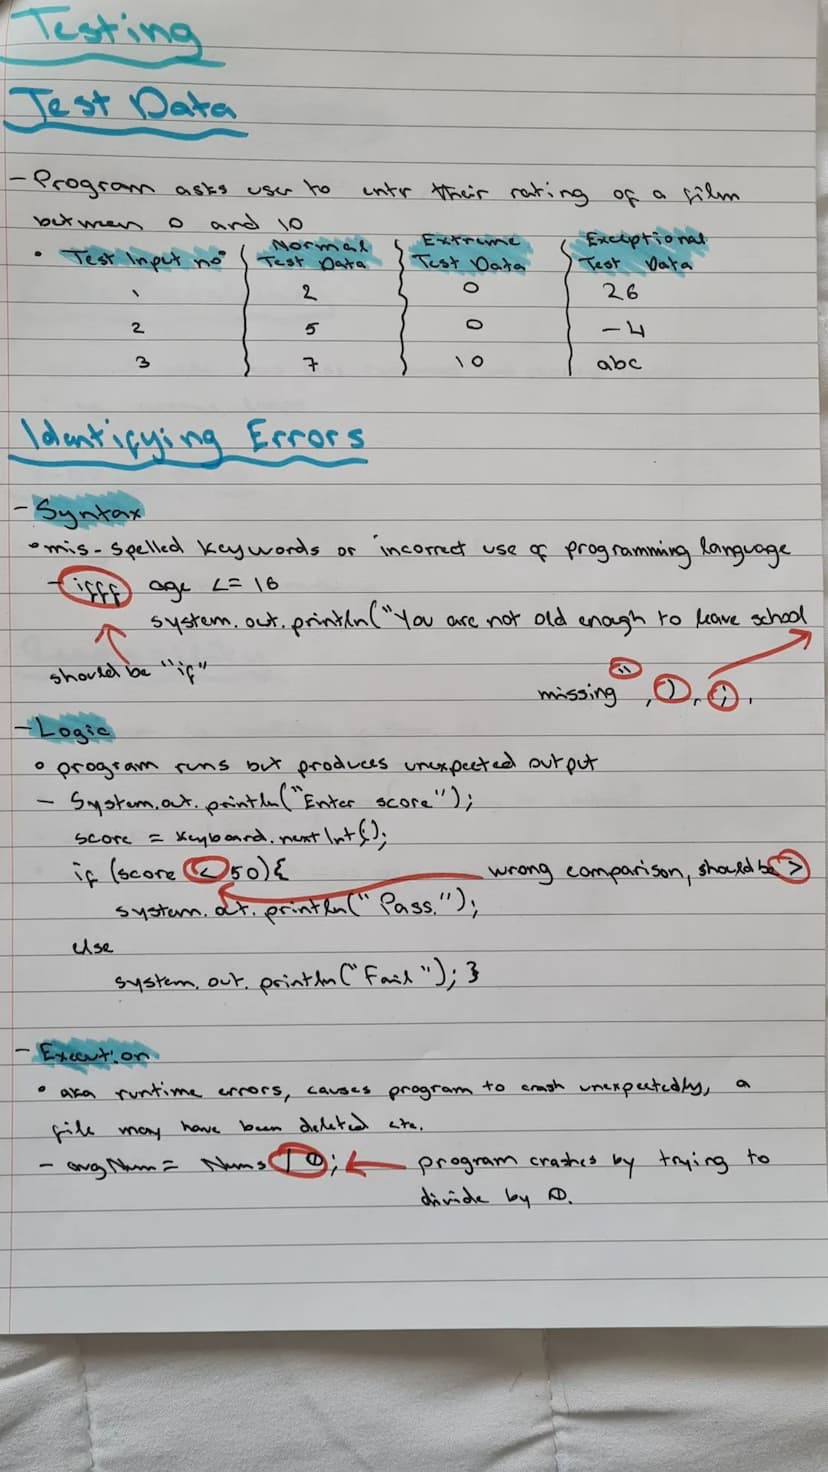 Testing
Test Data
- Program asks user to entr their rating of a film
between 0 and 10
• Test Input no Normal Test Data Extreme Test Data Exceptional Test Data
1 2 0 26
2 5 0 -4
3 7 10 abc
Identifying Errors
- Syntax
• mis-spelled keywords or incorrect use of programming language
- ifff age <= 16
system.out.println("You are not old enough to leave school
should be "if"
missing ", ), ;.
- Logic
• program runs but produces unexpected output
- System.out.println("Enter score");
score = keyboard.nextInt();
if (score < 50){ wrong comparison, should be >
system.out.println("Pass.");
else
system.out.println("Fail"); }
- Execution
• aka runtime errors, causes program to crash unexpectedly, a
file may have been deleted etc.
- avgNum = Nums / 0; program crashes by trying to
divide by 0.